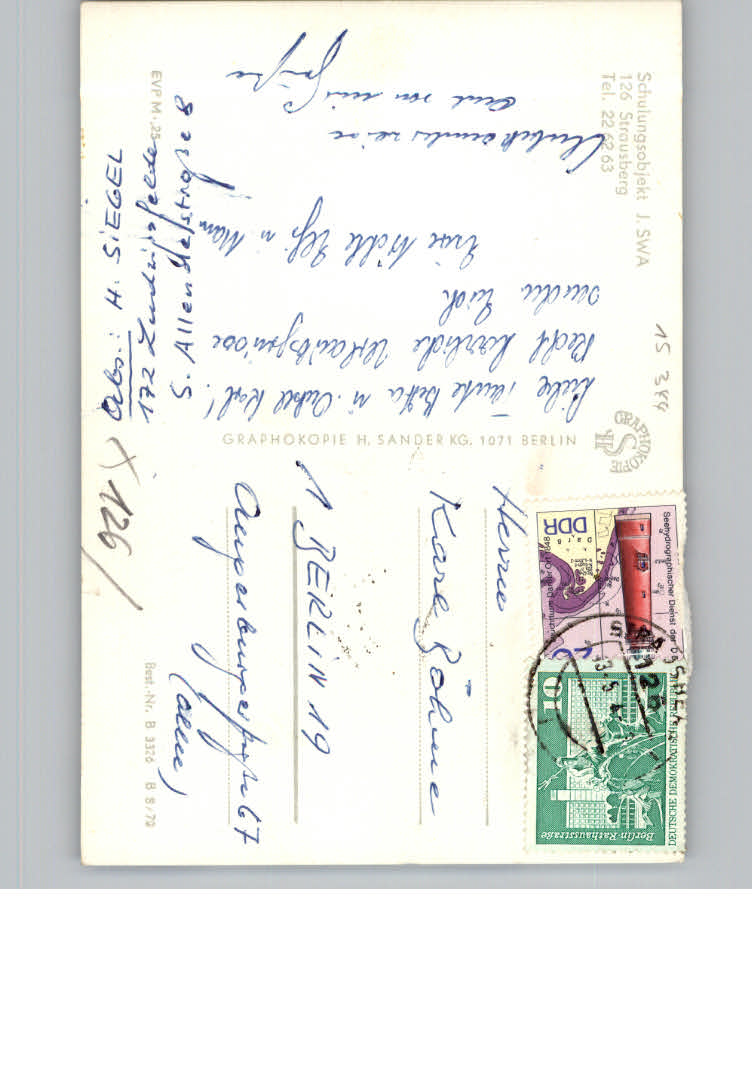 Schulungsobjekt J. SWA
126 Strausberg
Tel. 22 62 63
Liebe Tante Betta u. Onkel Karl!
Recht herzliche Urlaubsgrüsse
senden Euch
Eure Nichte Elfi u. Mann
Unbekannterweise
auch von mir
Grüße
EVP M -,25
Abs.: H. SIEGEL
172 Ludwigsfelde
S. Allendestrasse 8
15 344
X 126/
GRAPHOKOPIE H. SANDER KG. 1071 BERLIN
GRAPHOKOPIE
HS
Herrn
Karl Böhme
1 BERLIN 19
67
Best.-Nr. B 3326 B 8/70
Seehydrographischer Dienst der
DDR
10
Berlin-Rathausstraße
DEUTSCHE DEMOKRATISCHE REPUBLIK